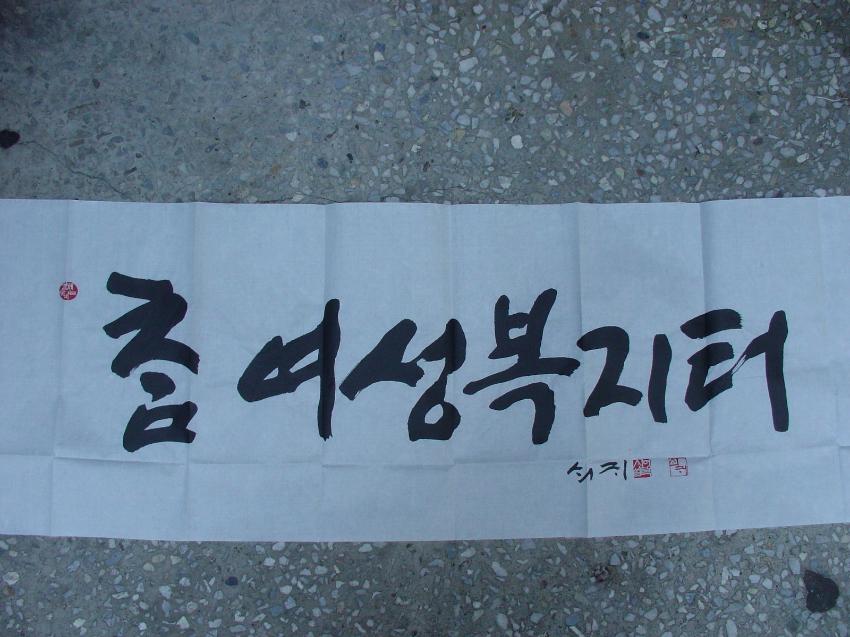 참 여성복지터
석지